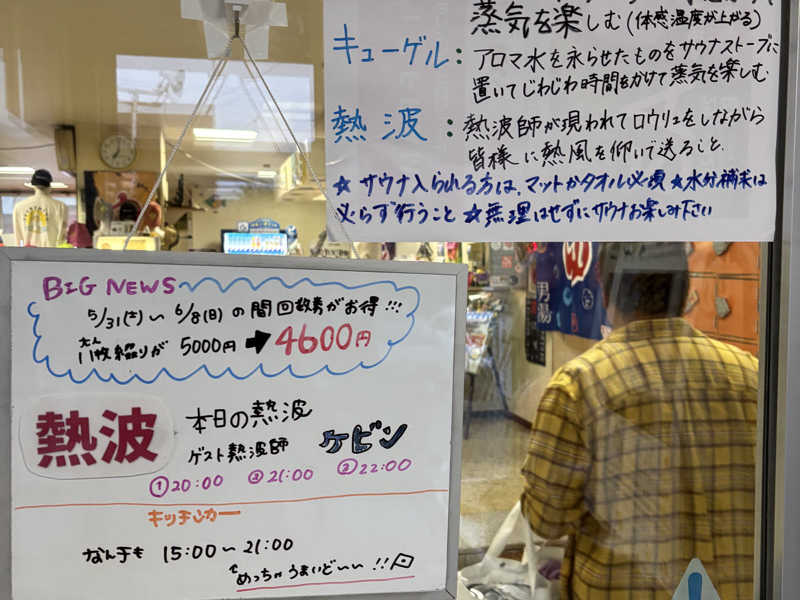 蒸気を楽しむ(体感温度が上がる)
キューゲル:アロマ水を氷らせたものをサウナストーブに
置いてじわじわ時間をかけて蒸気を楽しむ
熱波:熱波師が現われてロウリュをしながら
皆様に熱風を仰いで送ること.
☆サウナ入られる方は、マットかタオル必須☆水分補未は
必らず行うこと☆無理はせずにサウナお楽しみ下さい
BIG NEWS
5/31(土)〜6/8(日)の間回数券がお得!!!
11枚綴りが 5000円➡4600円
熱波
本日の熱波
ゲスト熱波師 ケビン
①20:00 ②21:00 ③22:00
キッチンカー
なん子も 15:00〜21:00
めっちゃうまいどいい!!